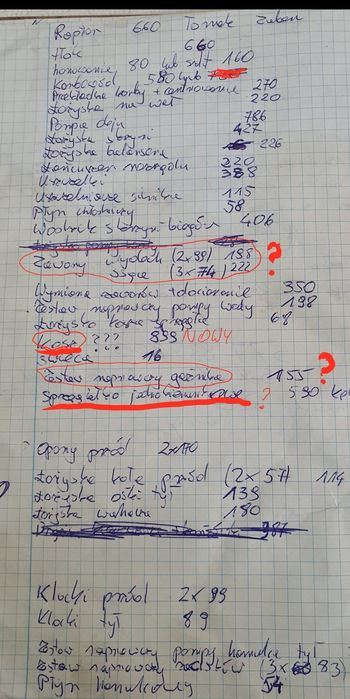 Raptor 660 Tomek Zuber
tłok 660
honowanie 80 lub szlif 160
Korbowód 580 lub
Przekładka korby + centrowanie 270
Łożyska na wał 220
Pompa oleju 786
Łożyska skrzyni 427
Łożyska balansera 226
Łańcuszek rozrządu 220
Uszczelki 388
Uszczelniacze silnika 115
Płyn chłodniczy 58
Wodzik skrzyni biegów 406
Zawory wydech (2x99) 198 ?
ssące (3x74) 222 ?
Wymiana zaworów + docieranie 350
Zestaw naprawczy pompy wody 198
Łożysko kosza sprzęgła 68
Kosz ??? 899 NOWY
Świeca 16
Zestaw naprawczy gaźnika 155 ?
Sprzęgiełko jednokierunkowe ? 590 kpl
Opony przód 2x170
Łożyska koła przód (2x57) 114
Łożyska ośki tył 139
Łożyska wahacza 180
Klocki przód 2x99
Klocki tył 89
Zestaw naprawczy pompy hamulca tył
Zestaw naprawczy zacisków (3x83)
Płyn hamulcowy 54